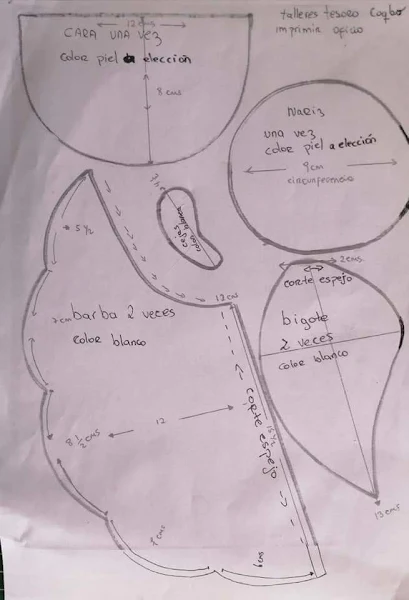 talleres tesoro
imprimir oficio
12 cms
CARA UNA VEZ
color piel a elección
8 cms
Nariz
una vez
color piel a elección
9cm
circunferencia
cejas
color blanco
5 1/2
2cms
corte espejo
bigote
2 veces
color blanco
13 cms
12 cms
7 cm
barba 2 veces
color blanco
corte espejo
15 1/2
12
8 1/2 cms
6cms